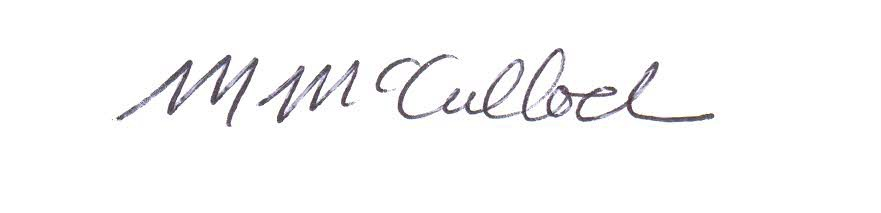 M McCulloch